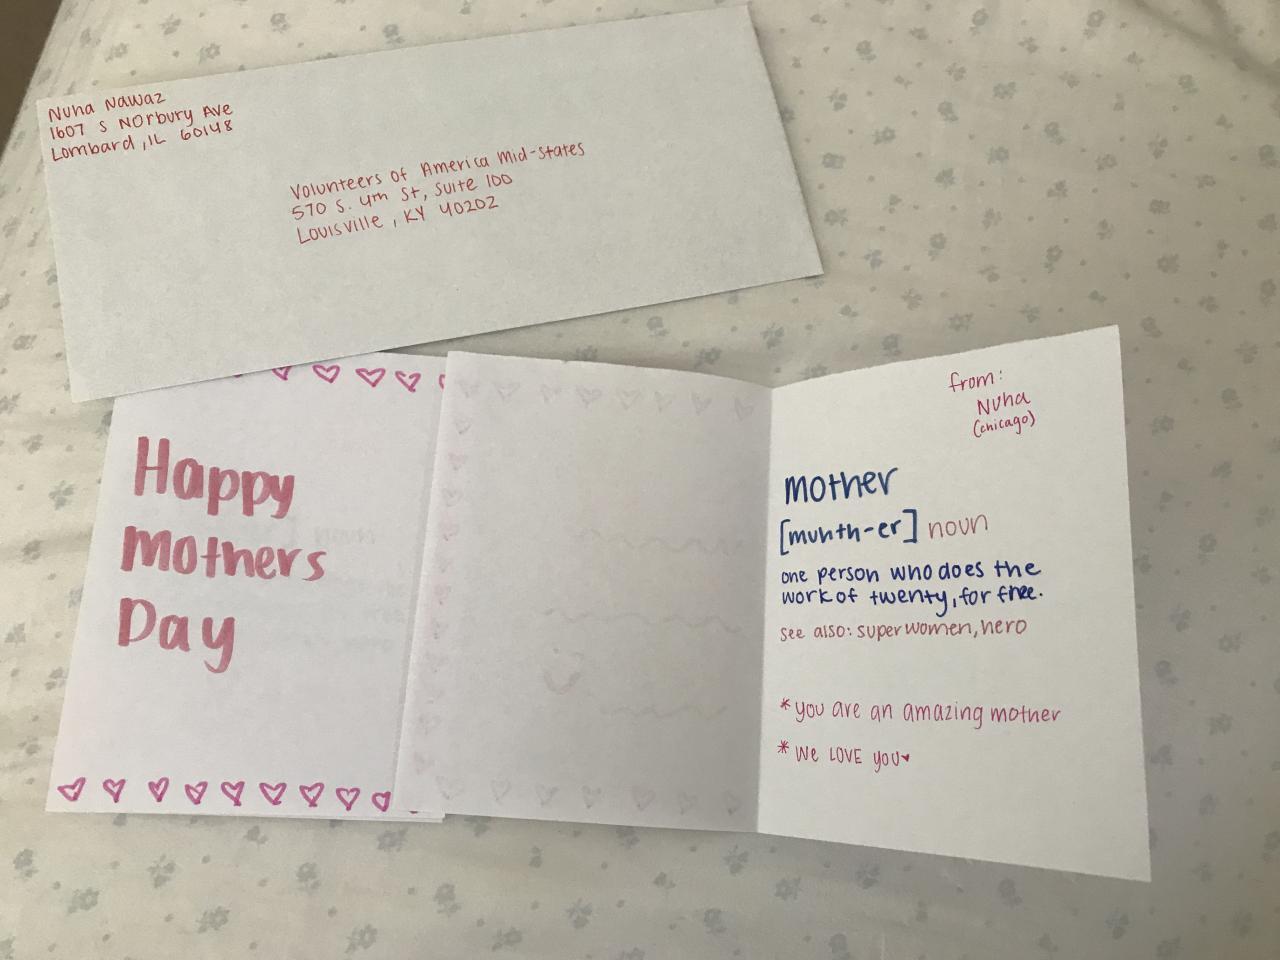 Nuha Nawaz
1607 S Norbury Ave
Lombard, IL 60148
Volunteers of America Mid-States
570 S. 4th St, Suite 100
Louisville, KY 40202
Happy
Mothers
Day
from:
Nuha
(chicago)
mother
[muhth-er] noun
one person who does the
work of twenty, for free.
see also: superwomen, hero
*you are an amazing mother
*We LOVE you♥